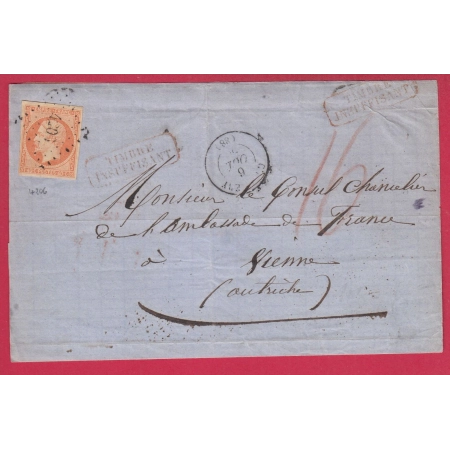 TIMBRE
INSUFFISANT
TIMBRE
INSUFFISANT
4206
16
Monsieur le Consul Chancelier
de l'ambassade de France
à
Vienne
(autriche)